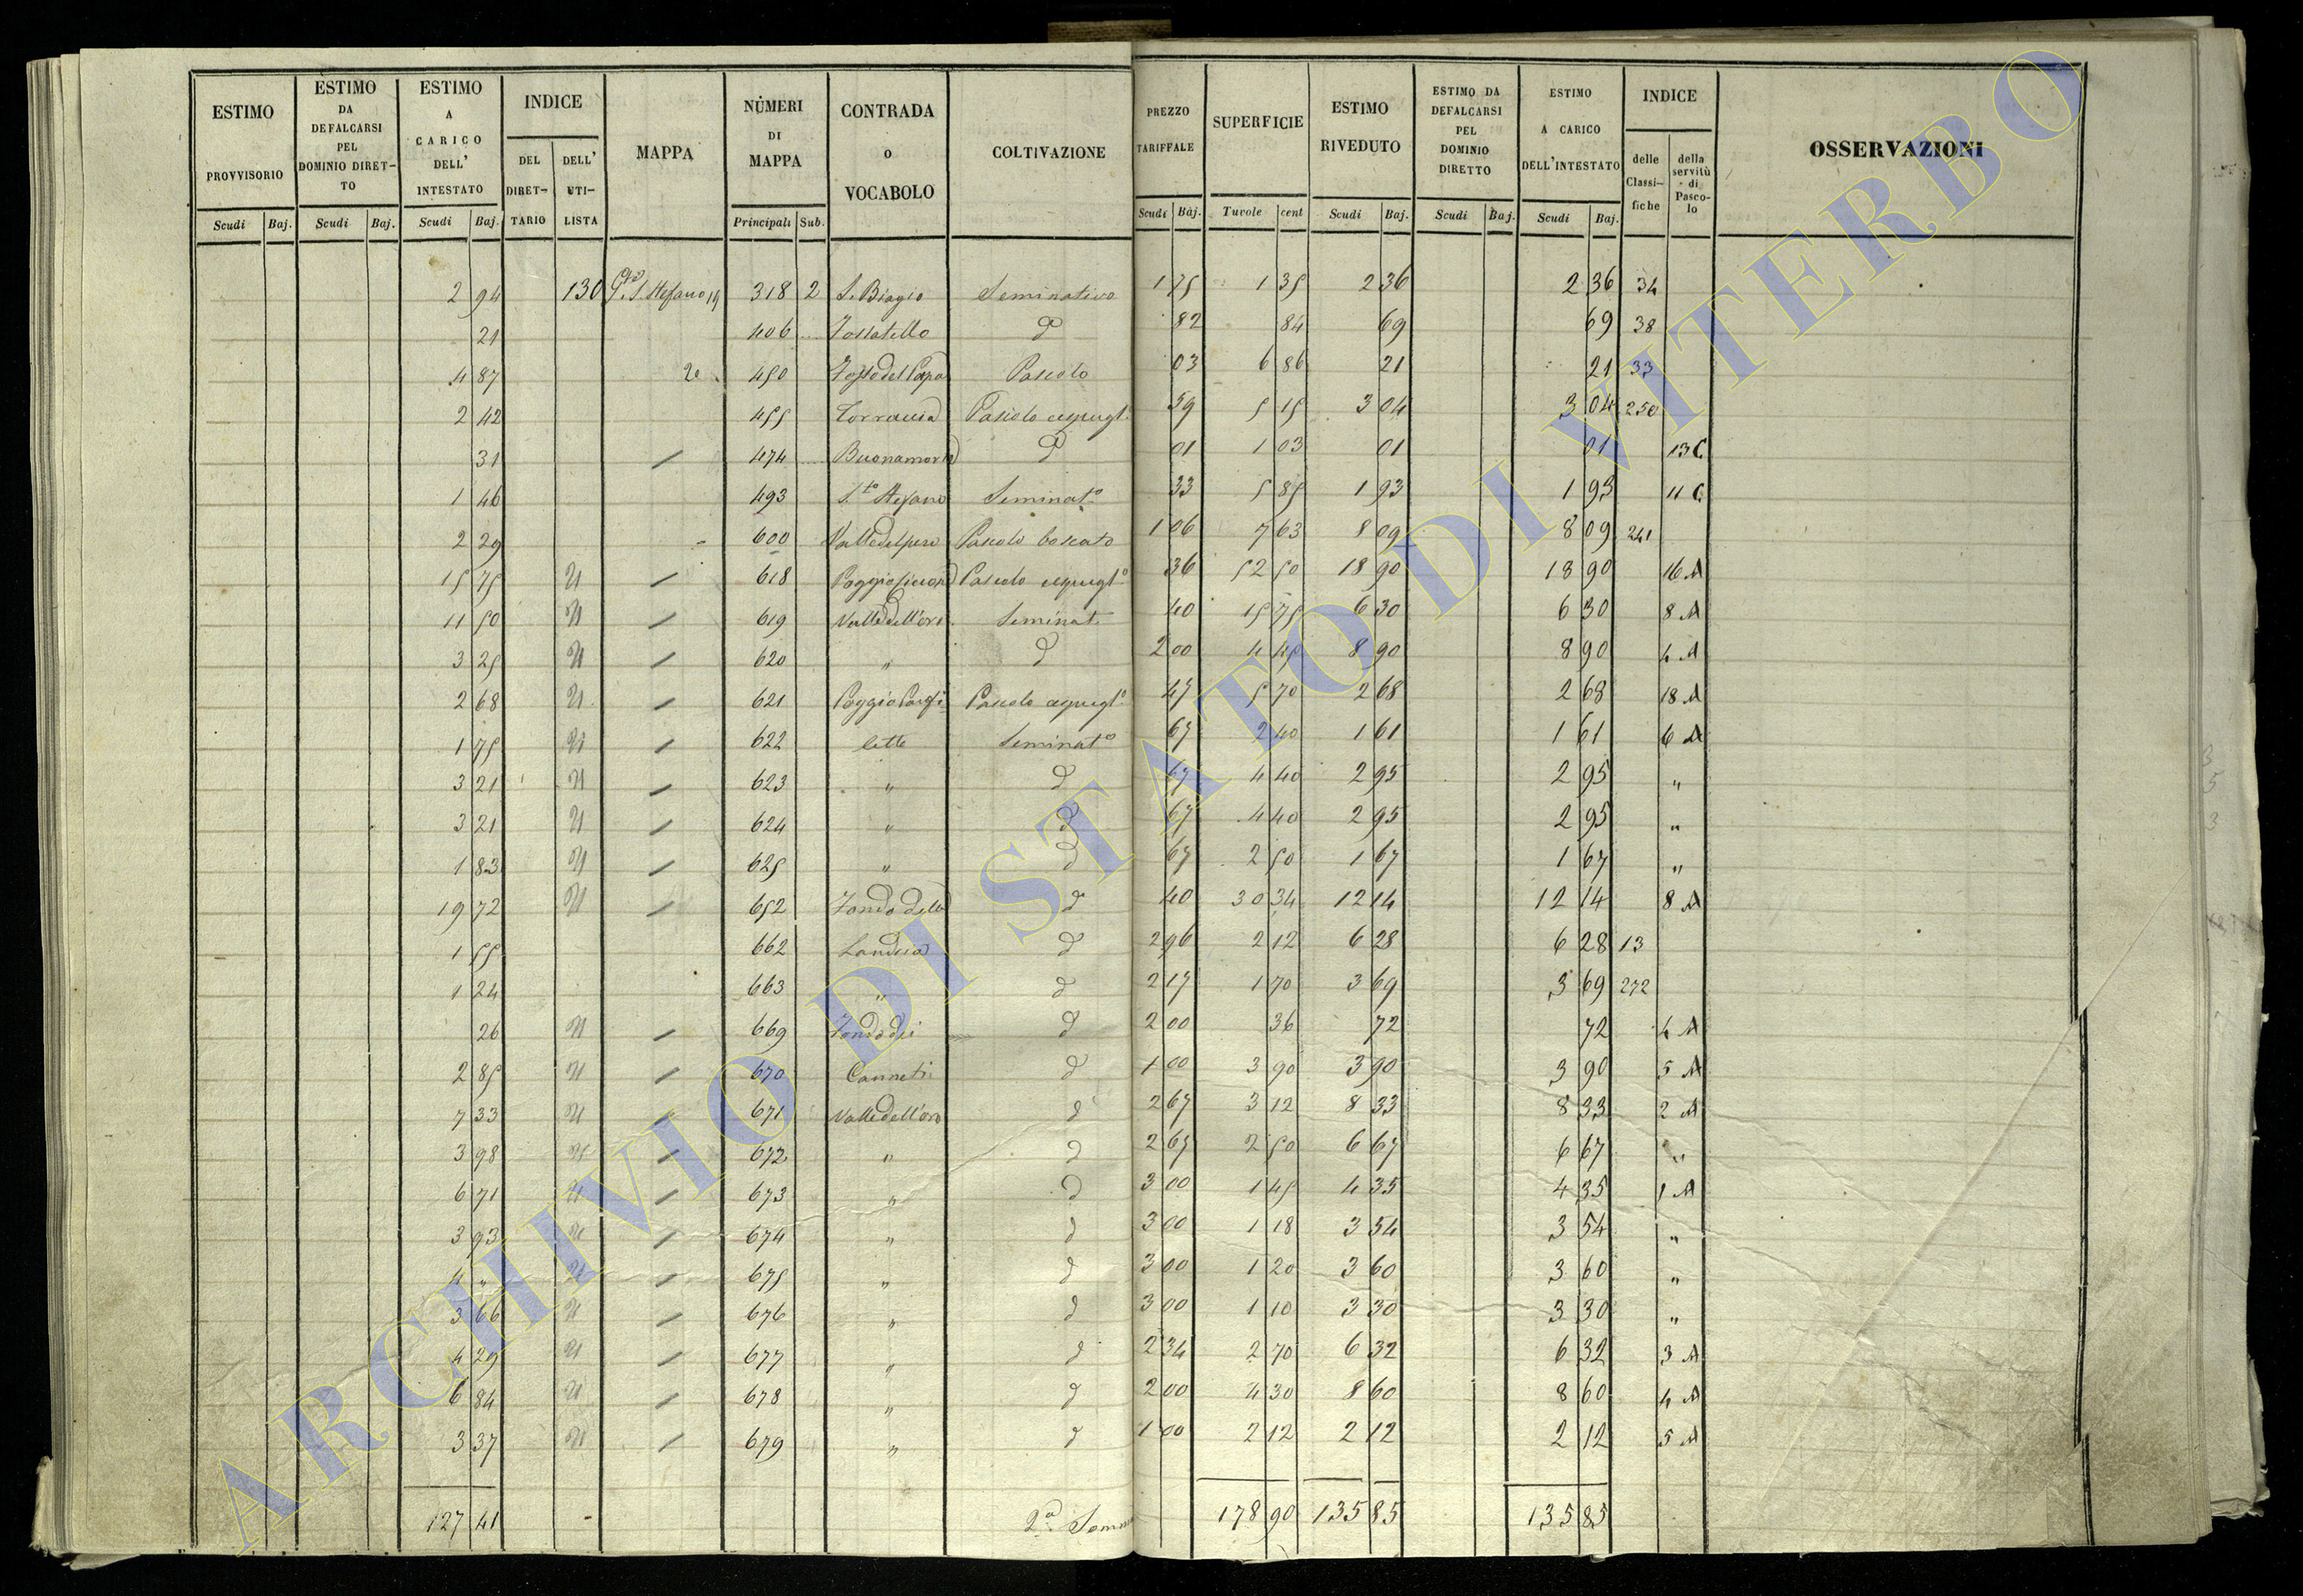 ESTIMO PROVVISORIO | ESTIMO DA DEFALCARSI PEL DOMINIO DIRETTO | ESTIMO A CARICO DELL' INTESTATO | INDICE DEL DIRETTARIO | DELL' UTILISTA | MAPPA | NUMERI DI MAPPA | CONTRADA O VOCABOLO | COLTIVAZIONE | PREZZO TARIFFALE | SUPERFICIE | ESTIMO RIVEDUTO | ESTIMO DA DEFALCARSI PEL DOMINIO DIRETTO | ESTIMO A CARICO DELL'INTESTATO | INDICE delle Classifiche | della servitù di Pascolo | OSSERVAZIONI
Scudi Baj. | Scudi Baj. | Scudi Baj. | Principali Sub. | Scudi Baj. | Tavole cent | Scudi Baj. | Scudi Baj. | Scudi Baj.
2 94 130 S. Stefano 318 2 S. Biagio Seminativo 1 75 1 35 2 36 2 36 34
21 406 Fossatello d 82 84 69 69 38
4 87 450 Fosso del Papa Pascolo 03 6 86 21 21 33
2 42 455 Pascolo cespugl. 59 5 15 3 04 3 04 250
31 474 d 01 1 03 01 01 13 C
1 46 493 S.to Stefano Seminat.o 33 5 85 1 93 1 93 11 C
2 29 600 Pascolo boscato 1 06 7 63 8 09 8 09 241
15 75 618 Pascolo cespugl.o 36 52 50 18 90 18 90 16 A
11 50 619 Valle dell'oro Seminat. 40 15 75 6 30 6 30 8 A
3 25 620 " d 2 00 4 45 8 90 8 90 4 A
2 68 621 Pascolo cespugl.o 47 5 70 2 68 2 68 18 A
1 75 622 Seminat.o 67 2 40 1 61 1 61 6 A
3 21 623 " d 67 4 40 2 95 2 95 "
3 21 624 " d 67 4 40 2 95 2 95 "
1 83 625 " d 67 2 50 1 67 1 67 "
19 72 652 Fondo della d 40 30 34 12 14 12 14 8 A
1 55 662 d 2 96 2 12 6 28 6 28 13
1 24 663 " d 2 17 1 70 3 69 3 69 272
26 669 Fondo dei d 2 00 36 72 72 4 A
2 85 670 Canneti d 1 00 3 90 3 90 3 90 5 A
7 33 671 Valle dell'oro d 2 67 3 12 8 33 8 33 2 A
3 98 672 " d 2 67 2 50 6 67 6 67 "
6 71 673 " d 3 00 1 45 4 35 4 35 1 A
3 93 674 " d 3 00 1 18 3 54 3 54 "
4 " 675 " d 3 00 1 20 3 60 3 60 "
3 66 676 " d 3 00 1 10 3 30 3 30 "
4 29 677 " d 2 34 2 70 6 32 6 32 3 A
6 84 678 " d 2 00 4 30 8 60 8 60 4 A
3 37 679 " d 1 00 2 12 2 12 2 12 5 A
127 41 2a Somma 178 90 135 85 135 85
ARCHIVIO DI STATO DI VITERBO